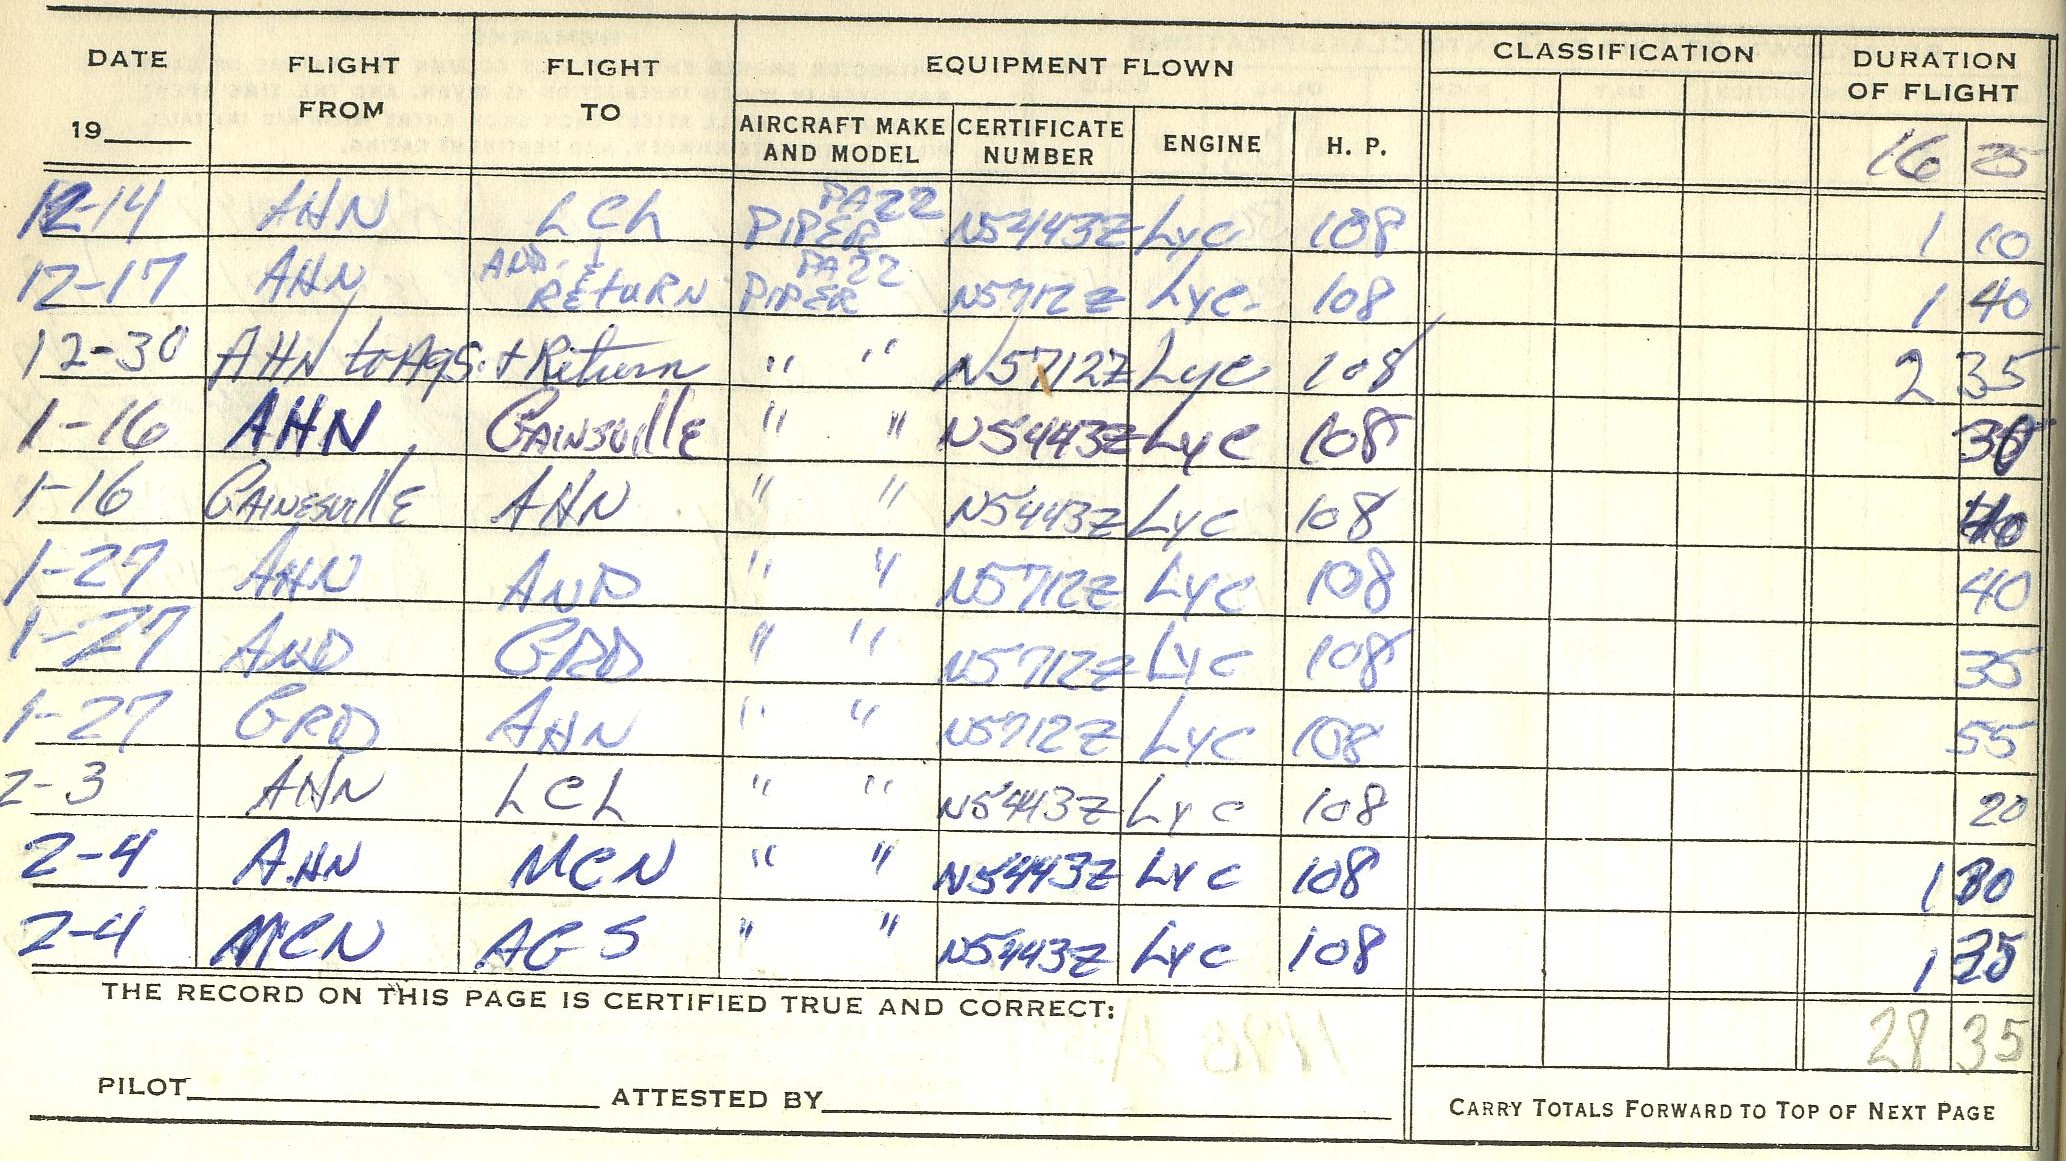 DATE FLIGHT FROM FLIGHT TO EQUIPMENT FLOWN CLASSIFICATION DURATION OF FLIGHT
19 AIRCRAFT MAKE AND MODEL CERTIFICATE NUMBER ENGINE H. P. 16 25
12-14 AHN LCL PIPER PA22 N5443Z Lyc 108 1 10
12-17 AHN AND. & RETURN PIPER PA22 N5712Z Lyc. 108 1 40
12-30 AHN to AgS. & Return " " N5712Z Lyc 108 2 35
1-16 AHN GAINSVillE " " N5443Z Lyc 108
1-16 GAINESVillE AHN " " N5443Z Lyc 108 40
1-27 AHN AND " " N5712Z Lyc 108 40
1-27 AND GRD " " N5712Z Lyc 108 35
1-27 GRD AHN " " N5712Z Lyc 108 55
2-3 AHN LCL " " N5443Z Lyc 108 20
2-4 AHN MCN " " N5443Z Lyc 108 1 30
2-4 MCN AGS " " N5443Z Lyc 108 1
THE RECORD ON THIS PAGE IS CERTIFIED TRUE AND CORRECT:
28 35
PILOT ATTESTED BY
CARRY TOTALS FORWARD TO TOP OF NEXT PAGE